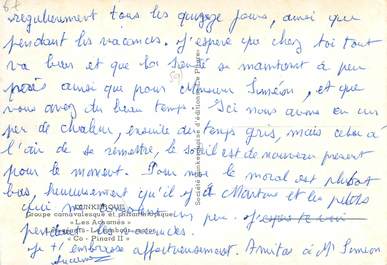 67
regulièrement tous les quinze jours, ainsi que
pendant les vacances. J'espère que chez toi tout
va bien et que la santé se maintient à peu
près ainsi que pour Monsieur Siméon, et que
vous avez du beau temps. Ici nous avons eu un
peu de chaleur, ensuite du temps gris, mais cela a
l'air de se remettre, le soleil est de nouveau présent
pour le moment. Pour moi le moral est plutôt
bas, heureusement qu'il y a Martine et les
qui me peu. J'espère te
pendant les vacances.
Je t'embrasse affectueusement. Amitiés à Mr Siméon
DUNKERQUE
Groupe carnavalesque et philanthropique
« Les Acharnés »
« Co - Pinard II »